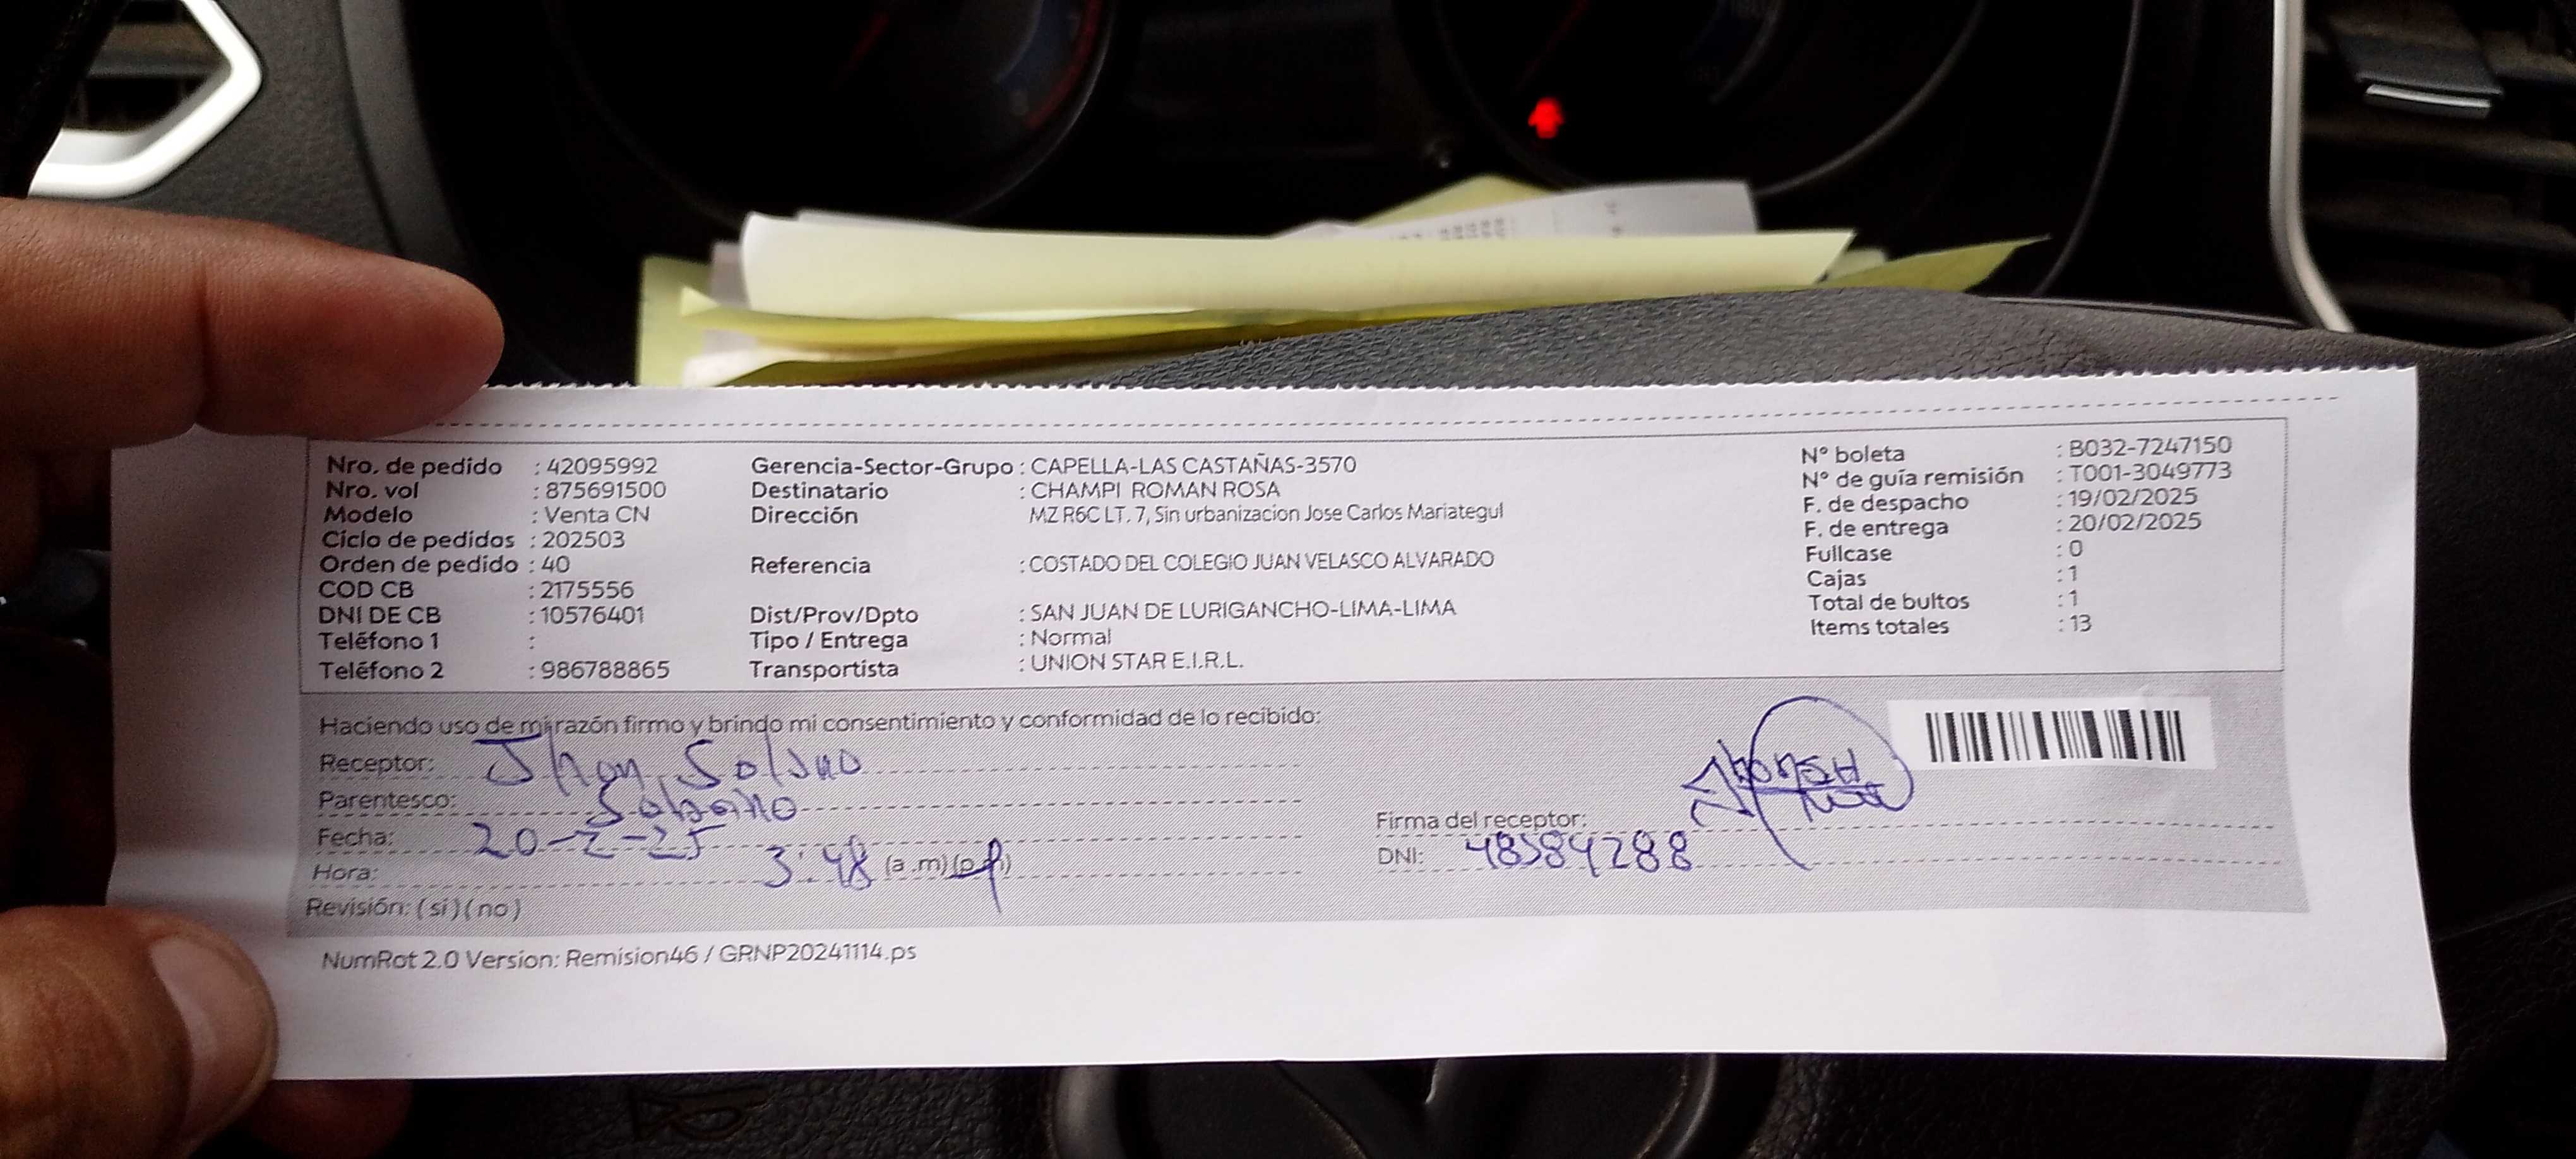 Nro. de pedido : 42095992
Nro. vol : 875691500
Modelo : Venta CN
Ciclo de pedidos : 202503
Orden de pedido : 40
COD CB : 2175556
DNI DE CB : 10576401
Teléfono 1 :
Teléfono 2 : 986788865
Gerencia-Sector-Grupo : CAPELLA-LAS CASTAÑAS-3570
Destinatario : CHAMPI ROMAN ROSA
Dirección MZ R6C LT. 7, Sin urbanizacion Jose Carlos Mariategul
Referencia : COSTADO DEL COLEGIO JUAN VELASCO ALVARADO
Dist/Prov/Dpto : SAN JUAN DE LURIGANCHO-LIMA-LIMA
Tipo / Entrega : Normal
Transportista : UNION STAR E.I.R.L.
N° boleta : B032-7247150
N° de guía remisión : T001-3049773
F. de despacho : 19/02/2025
F. de entrega : 20/02/2025
Fullcase : 0
Cajas : 1
Total de bultos : 1
Items totales : 13
Haciendo uso de mi razón firmo y brindo mi consentimiento y conformidad de lo recibido:
Receptor: Jhon
Parentesco:
Fecha: 20-2-25
Hora: 3:48 (a.m)(p.m)
Revisión: (si)(no)
Firma del receptor:
DNI: 48584288
NumRot 2.0 Version: Remision46 / GRNP20241114.ps